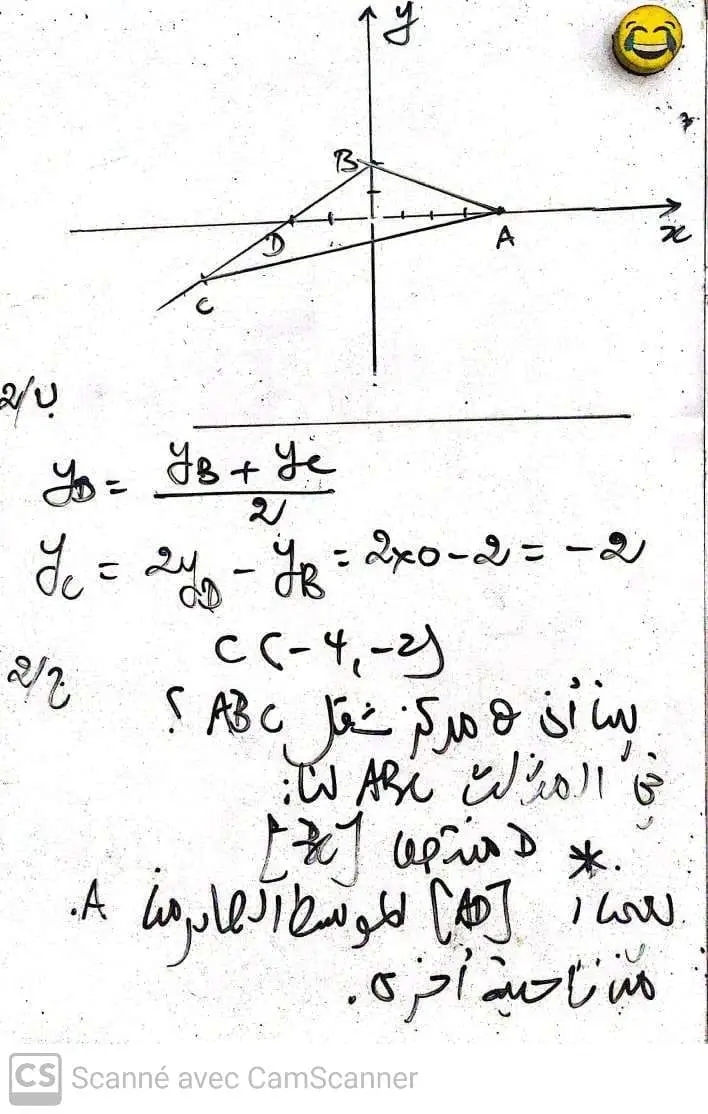 y
B
D
A
x
C
2/ب
y_D = (y_B + y_C)/2
y_C = 2y_D - y_B = 2×0-2 = -2
C(-4,-2)
2/ج
بين أن O مركز ثقل ABC ؟
في المثلث ABC لنا:
* D منتصف [BC]
[AD] الموسط الصادر من A.
من ناحية أخرى.
CS Scanné avec CamScanner